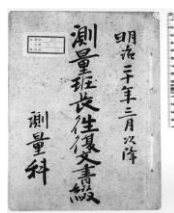 明治二十年三月以降
測量班長往復文書綴
測量科